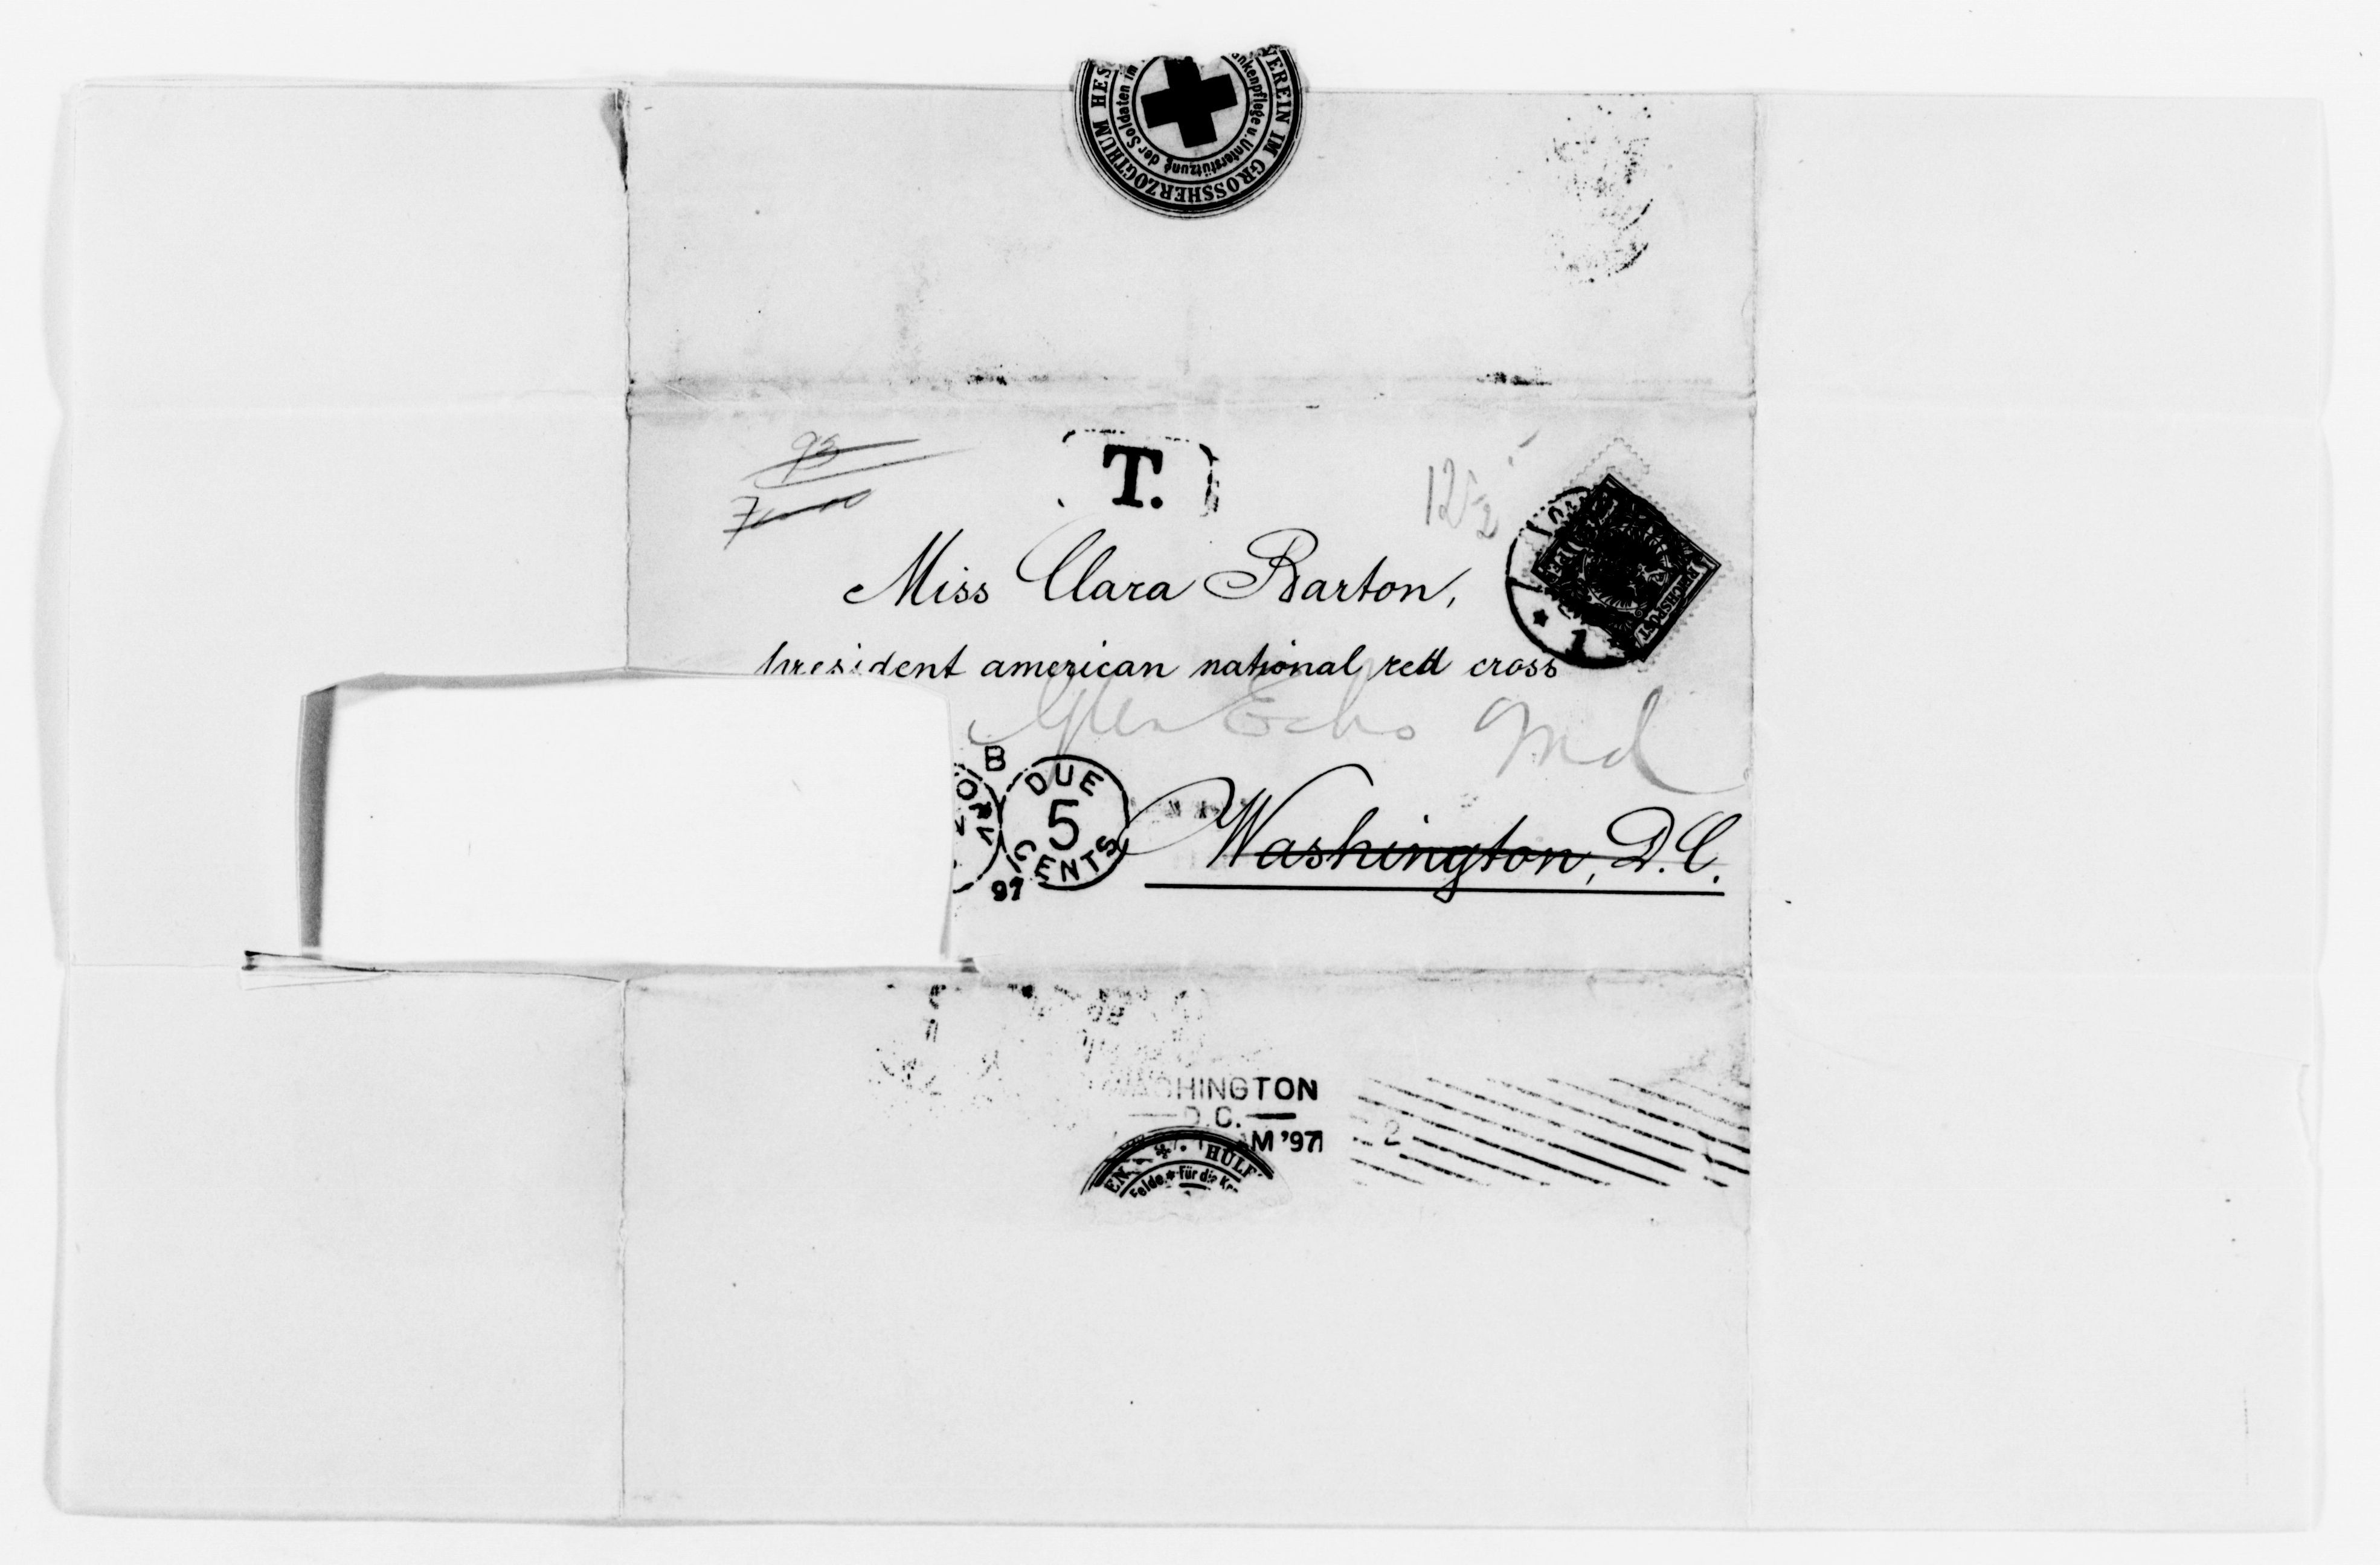 VEREIN IM GROSSHERZOGTHUM HES
nkenpflege u. Unterstützung der Soldaten im
93
T.
12 1/2
REICHSPOST
1
Miss Clara Barton,
president american national red cross
Glen Echo Md
B
DUE
5
CENTS
97
Washington, D.C.
WASHINGTON
D.C.
AM '97
2
EN HÜLF
Felde. für die K